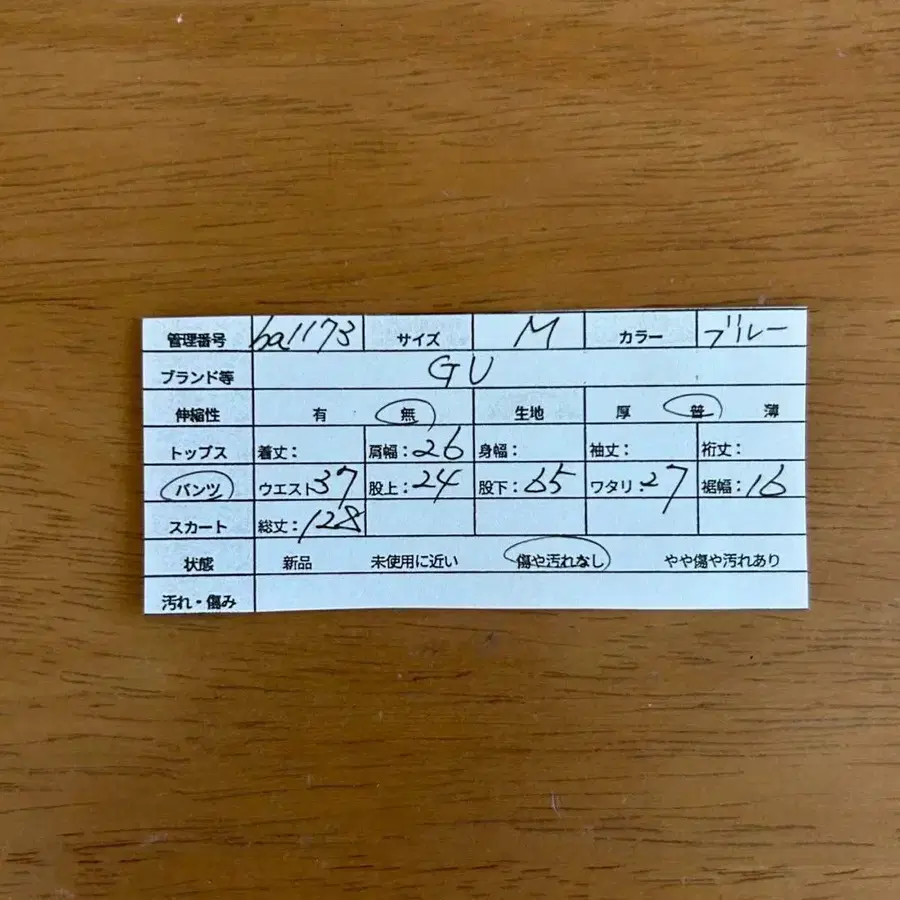 管理番号 ba1173 サイズ M カラー ブルー
ブランド等 GU
伸縮性 有 無 生地 厚 普 薄
トップス 着丈: 肩幅:26 身幅: 袖丈: 裄丈:
パンツ ウエスト37 股上:24 股下:65 ワタリ:27 裾幅:16
スカート 総丈:128
状態 新品 未使用に近い 傷や汚れなし やや傷や汚れあり
汚れ・傷み